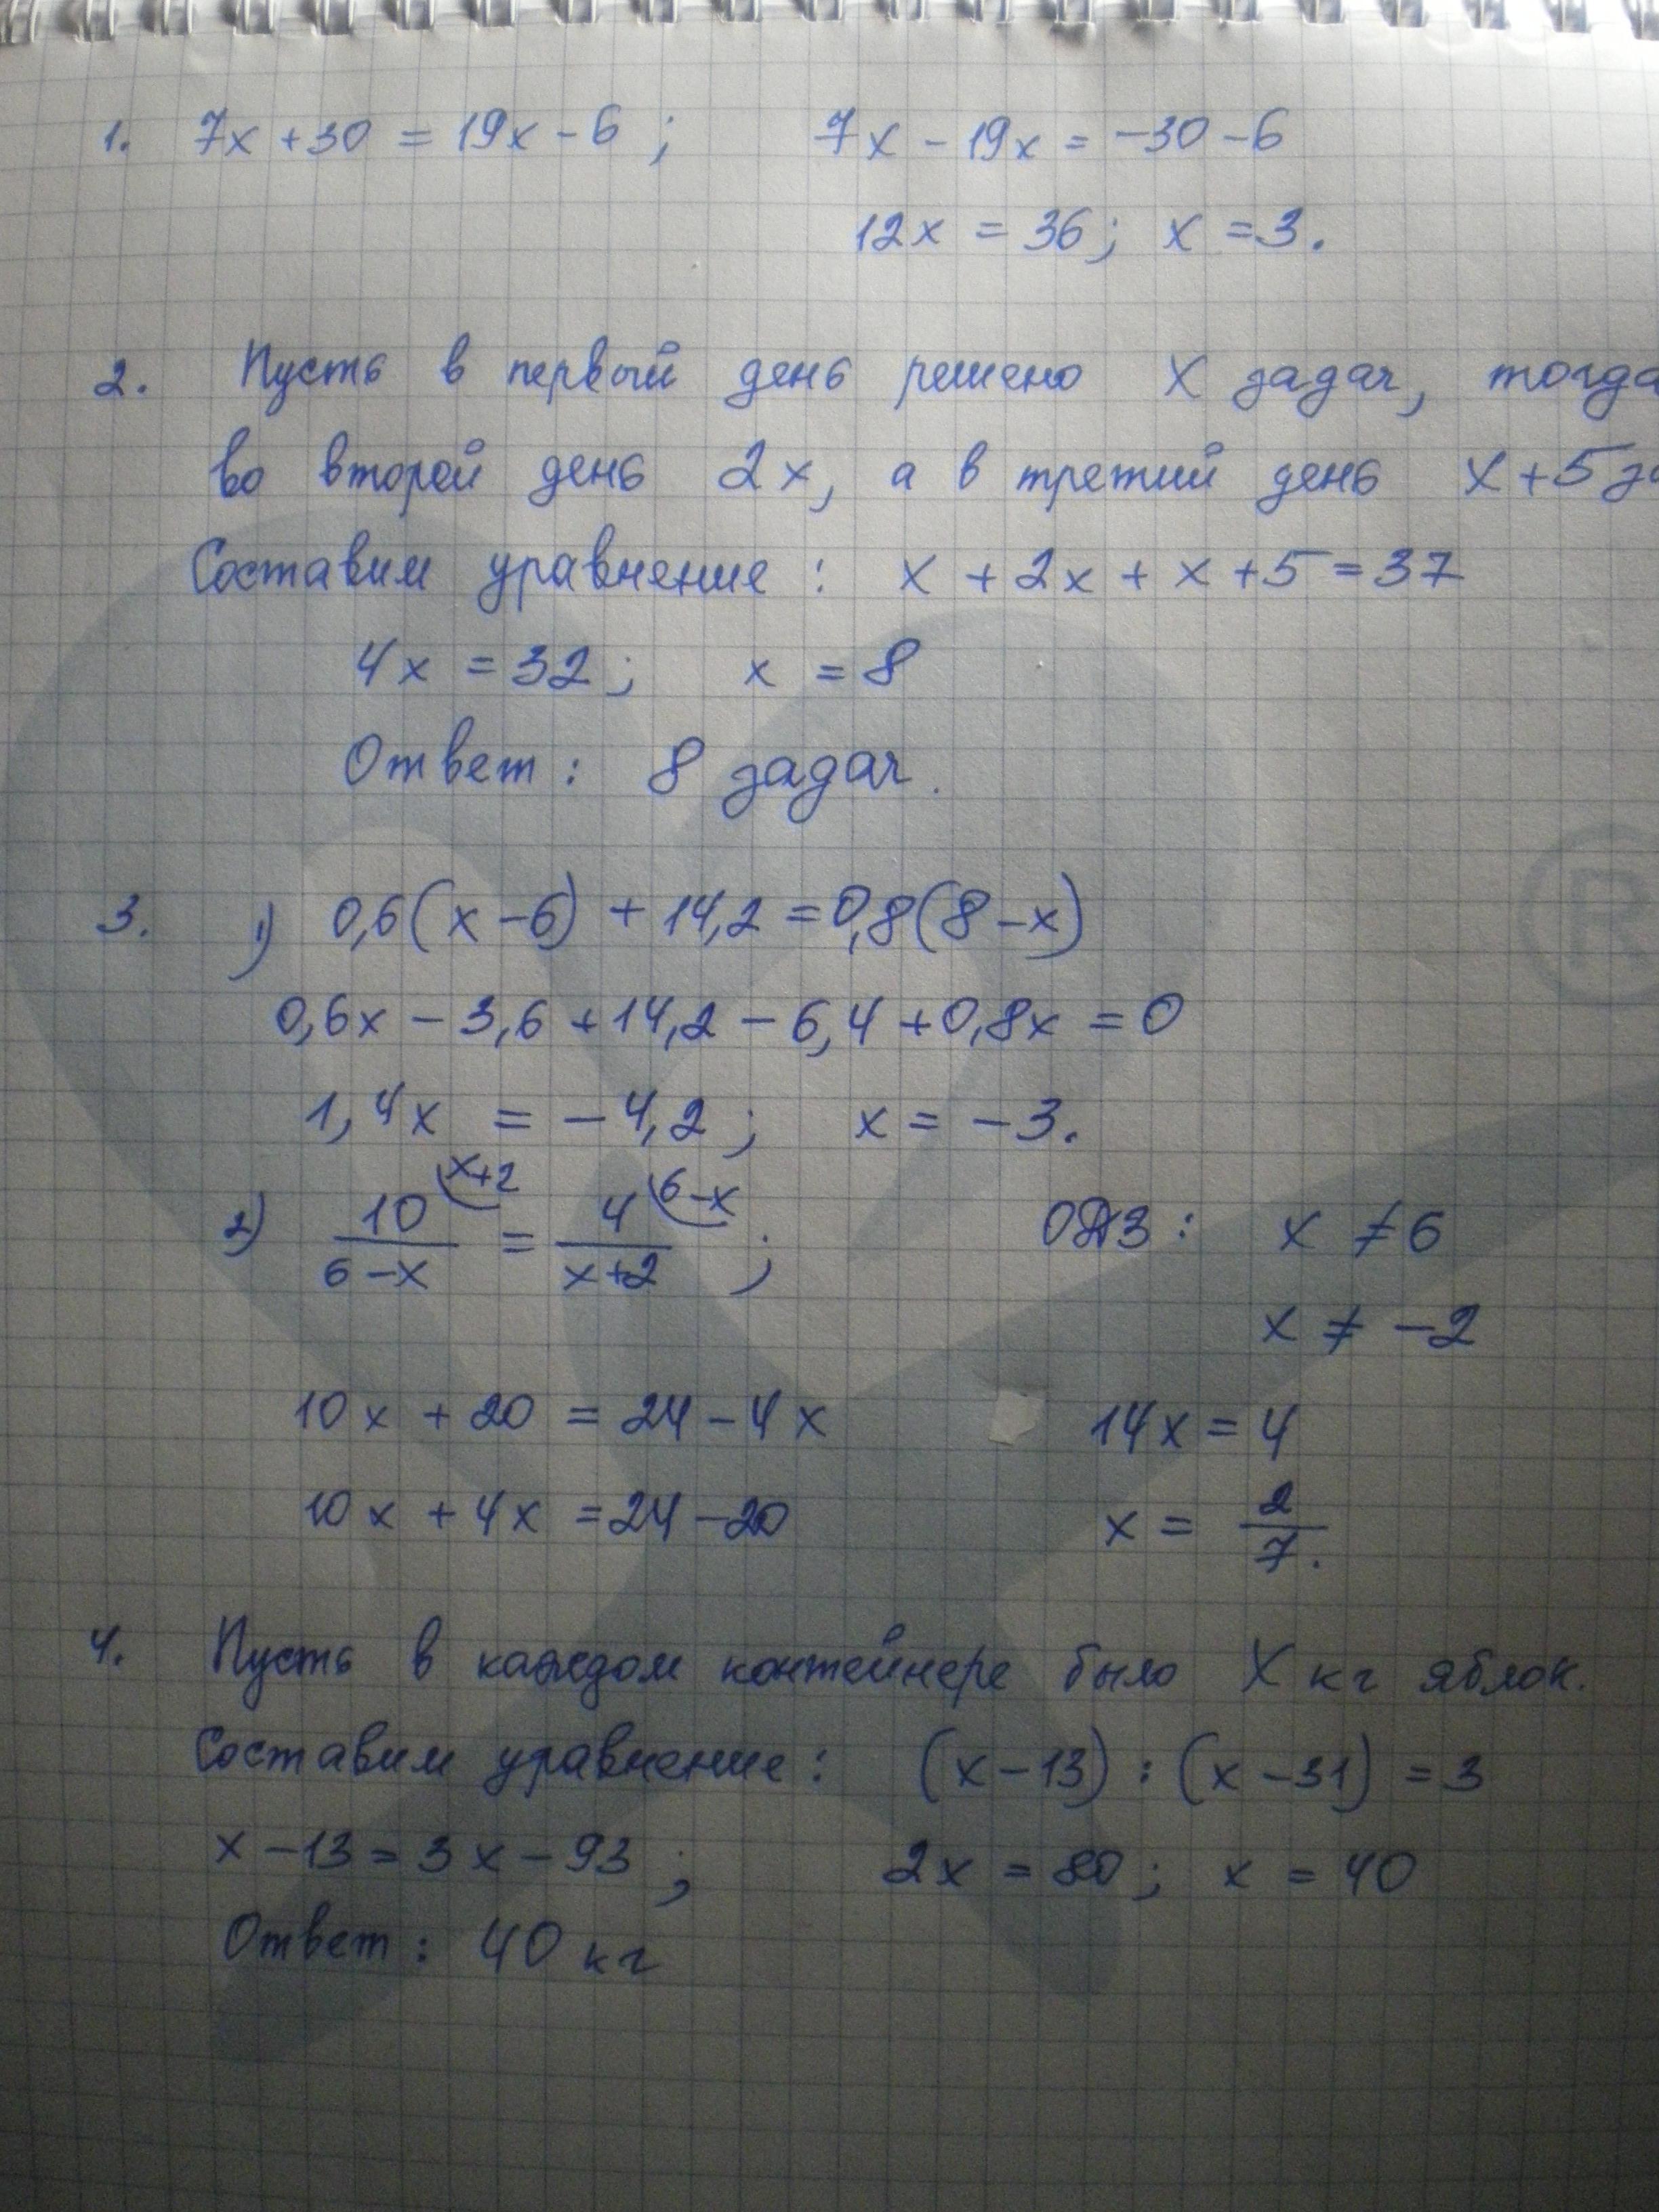 1. 7x + 30 = 19x - 6 ; 7x - 19x = -30 - 6
12x = 36; x = 3.
2. Пусть в первый день решено x задач, тогда
во второй день 2x, а в третий день x + 5
Составим уравнение: x + 2x + x + 5 = 37
4x = 32; x = 8
Ответ: 8 задач.
3. 1) 0,6(x - 6) + 14,2 = 0,8(8 - x)
0,6x - 3,6 + 14,2 - 6,4 + 0,8x = 0
1,4x = -4,2; x = -3.
2) 10/(6-x) (x+2 = 4/(x+2) (6-x ; ОДЗ: x ≠ 6
x ≠ -2
10x + 20 = 24 - 4x 14x = 4
10x + 4x = 24 - 20 x = 2/7.
4. Пусть в каждом контейнере было x кг яблок.
Составим уравнение: (x - 13) : (x - 31) = 3
x - 13 = 3x - 93 ; 2x = 80; x = 40
Ответ: 40 кг
®